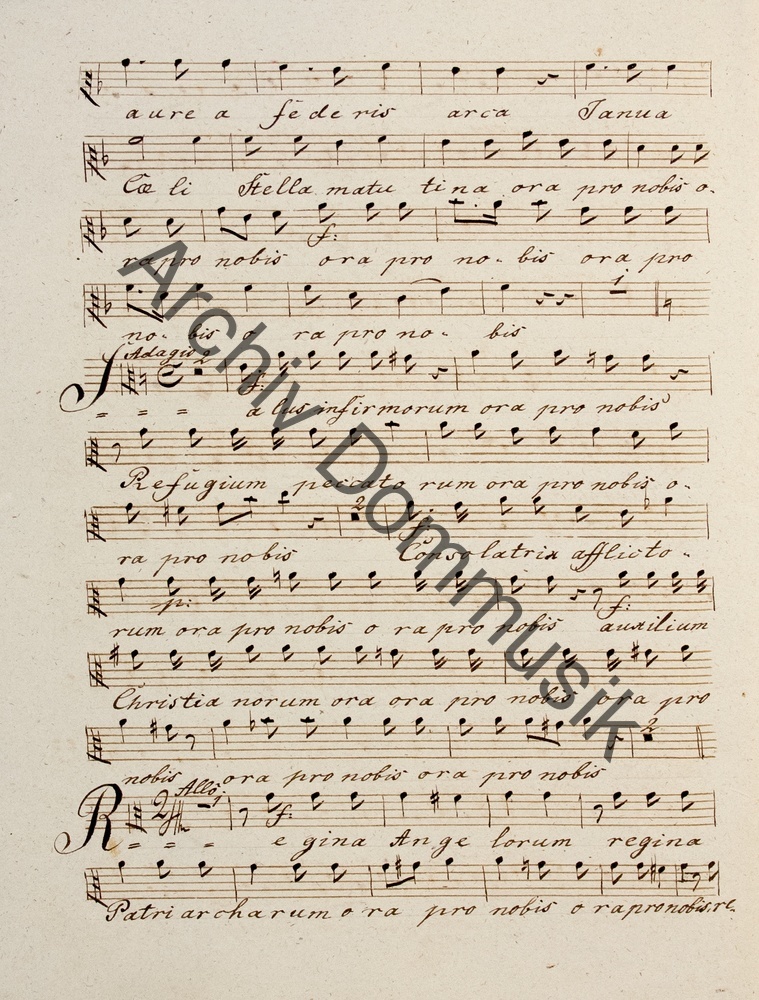 aurea fēderis arca Janua
Cœli Stella matutina ora pro nobis o-
f:
rapro nobis ora pro no-bis ora pro
1
no-bis o rapro no-bis
Adagio 2
f:
S=== alus infirmorum ora pro nobis
Refugium peccatorum ora pro nobis o-
2
f:
ra pro nobis Consolatrix afflicto-
p: f:
rum ora pro nobis o rapro nobis auxilium
Christianorum ora ora pro nobis ora pro
2
nobis ora pro nobis ora pro nobis
Allo: 1
2 f:
R=== egina Angelorum regina
Patriarcharum ora pro nobis o rapronobis, re-
Archiv Dommusik